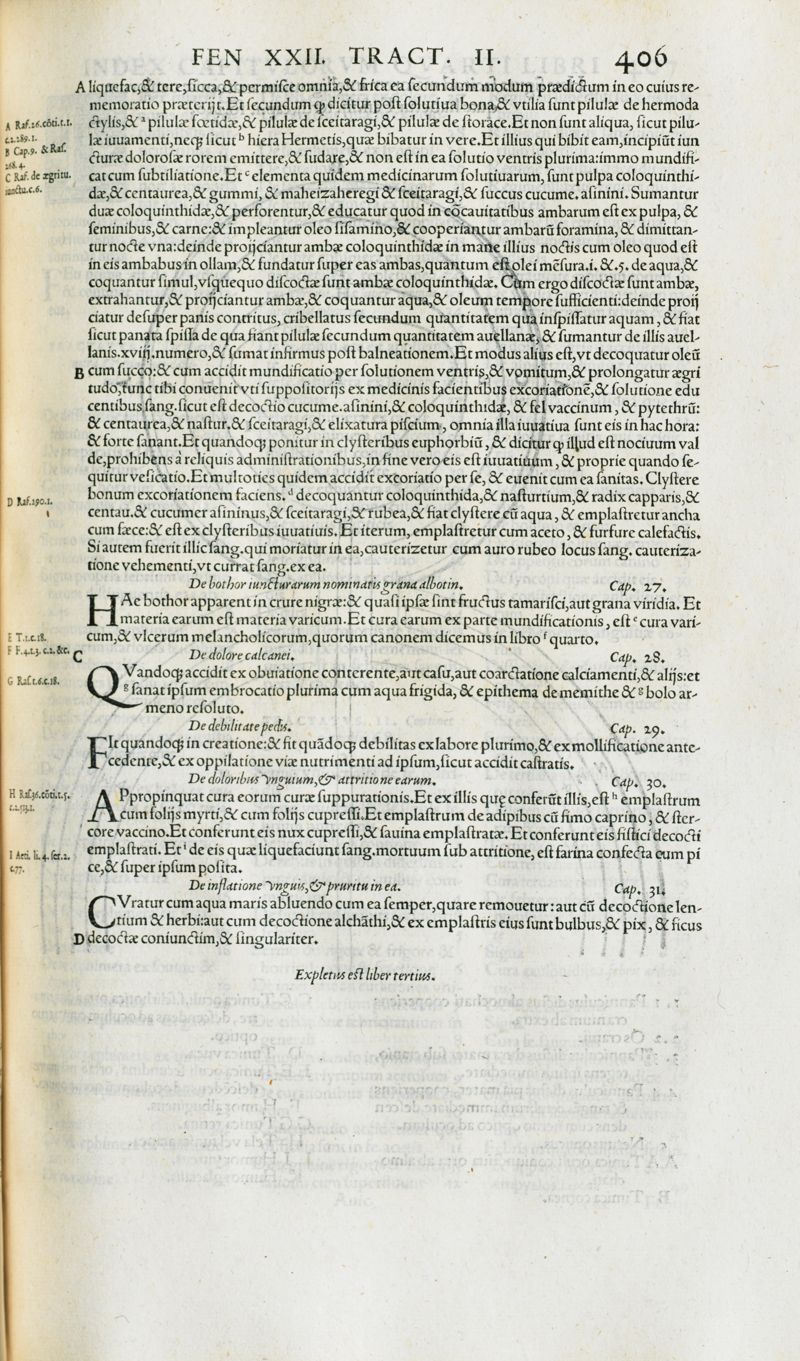 FEN XXII. TRACT. II. 406
A liquefac,& tere, sicca,& permisce omnia,& frica ea secundum modum prædictum in eo cuius re-
memoratio præterijt. Et secundum ꝙ dicitur post solutiua bona,& vtilia sunt pilulæ de hermoda
ctylis,& ᵃ pilulæ fœtidæ,& pilulæ de sceitaragi,& pilulæ de storace. Et non sunt aliqua, sicut pilu-
læ iuuamenti, neqꝫ sicut ᵇ hiera Hermetis, quæ bibatur in vere. Et illius qui bibit eam, incipiũt iun
cturæ dolorosæ rorem emittere,& sudare,& non est in ea solutio ventris plurima: immo mundifi-
cat cum subtiliatione. Et ᶜ elementa quidem medicinarum solutiuarum, sunt pulpa coloquinthi-
dæ,& centaurea,& gummi, & maheizaheregi & sceitaragi,& succus cucume. asinini. Sumantur
duæ coloquinthidæ,& perforentur,& educatur quod in cõcauitatibus ambarum est ex pulpa, &
seminibus,& carne:& impleantur oleo sisamino,& cooperiantur ambarũ foramina, & dimittan-
tur nocte vna: deinde proijciantur ambæ coloquinthidæ in mane illius noctis cum oleo quod est
in eis ambabus in ollam,& fundatur super eas ambas, quantum est olei mẽsura.i. &.5. de aqua,&
coquantur simul, vsquequo discoctæ sunt ambæ coloquinthidæ. Cum ergo discoctæ sunt ambæ,
extrahantur,& proijciantur ambæ,& coquantur aqua,& oleum tempore sufficienti: deinde proij
ciatur desuper panis contritus, cribellatus secundum quantitatem qua inspissatur aquam, & fiat
sicut panata spissa de qua fiant pilulæ secundum quantitatem auellanæ, & sumantur de illis auel-
lanis.xviij.numero,& sumat infirmus post balneationem. Et modus alius est, vt decoquatur oleũ
B cum succo:& cum accidit mundificatio per solutionem ventris,& vomitum,& prolongatur ægri
tudo, tunc tibi conuenit vti suppositorijs ex medicinis facientibus excoriationẽ,& solutione edu
centibus sang. sicut est decoctio cucume. asinini,& coloquinthidæ, & fel vaccinum, & pytethrũ:
& centaurea,& nastur.& sceitaragi,& elixatura piscium, omnia illa iuuatiua sunt eis in hac hora:
& forte sanant. Et quandoqꝫ ponitur in clysteribus euphorbiũ, & dicitur ꝙ illud est nociuum val
de, prohibens à reliquis administrationibus, in fine vero eis est iuuatiuum, & proprie quando se-
quitur vesicatio. Et multoties quidem accidit excoriatio per se, & euenit cum ea sanitas. Clystere
bonum excoriationem faciens. ᵈ decoquantur coloquinthida,& nasturtium,& radix capparis,&
centau.& cucumer asininus,& sceitaragi,& rubea,& fiat clystere cũ aqua, & emplastretur ancha
cum fæce:& est ex clysteribus iuuatiuis. Et iterum, emplastretur cum aceto, & furfure calefactis.
Si autem fuerit illic sang. qui moriatur in ea, cauterizetur cum auro rubeo locus sang. cauteriza-
tione vehementi, vt currat sang. ex ea.
De bothor iuncturarum nominatis grana albotin. Cap. 27.
HAe bothor apparent in crure nigræ:& quasi ipsæ sint fructus tamarisci, aut grana viridia. Et
materia earum est materia varicum. Et cura earum ex parte mundificationis, est ᵉ cura vari-
cum,& vlcerum melancholicorum, quorum canonem dicemus in libro ᶠ quarto.
C De dolore calcanei. Cap. 28.
QVandoqꝫ accidit ex obuiatione conterente, aut casu, aut coarctatione calciamenti,& alijs: et
ᵍ sanat ipsum embrocatio plurima cum aqua frigida, & epithema de memithe & ᵍ bolo ar-
meno resoluto.
De debilitate pedis. Cap. 29.
FIt quandoqꝫ in creatione:& fit quãdoqꝫ debilitas ex labore plurimo,& ex mollificatione ante-
cedente,& ex oppilatione viæ nutrimenti ad ipsum, sicut accidit castratis.
De doloribus vnguium,& attritione earum. Cap. 30.
APpropinquat cura eorum curæ suppurationis. Et ex illis quę conferũt illis, est ʰ emplastrum
cum folijs myrti,& cum folijs cupressi. Et emplastrum de adipibus cũ fimo caprino, & ster-
core vaccino. Et conferunt eis nux cupressi,& sauina emplastratæ. Et conferunt eis fistici decocti
emplastrati. Et ⁱ de eis quæ liquefaciunt sang. mortuum sub attritione, est farina confecta cum pi
ce,& super ipsum posita.
De inflatione vnguis,& pruritu in ea. Cap. 31.
CVratur cum aqua maris abluendo cum ea semper, quare remouetur: aut cũ decoctione len-
tium & herbi: aut cum decoctione alchãthi,& ex emplastris eius sunt bulbus,& pix, & ficus
D decoctæ coniunctim,& singulariter.
Expletus est liber tertius.
A Ras.26.cõti.t.1.
c.2.289.1.
B Cap.9. & Ras.
268.4.
C Ras. de ægritu.
iunctu.c.6.
D Ras.190.1.
E T.1.c.18.
F F.4.t.3. c.2. &c.
G Ras.t.6.c.18.
H Ras.36.cõti.t.5.
c.2.513.1.
I Aeti. li.4. ser.2.
c.77.